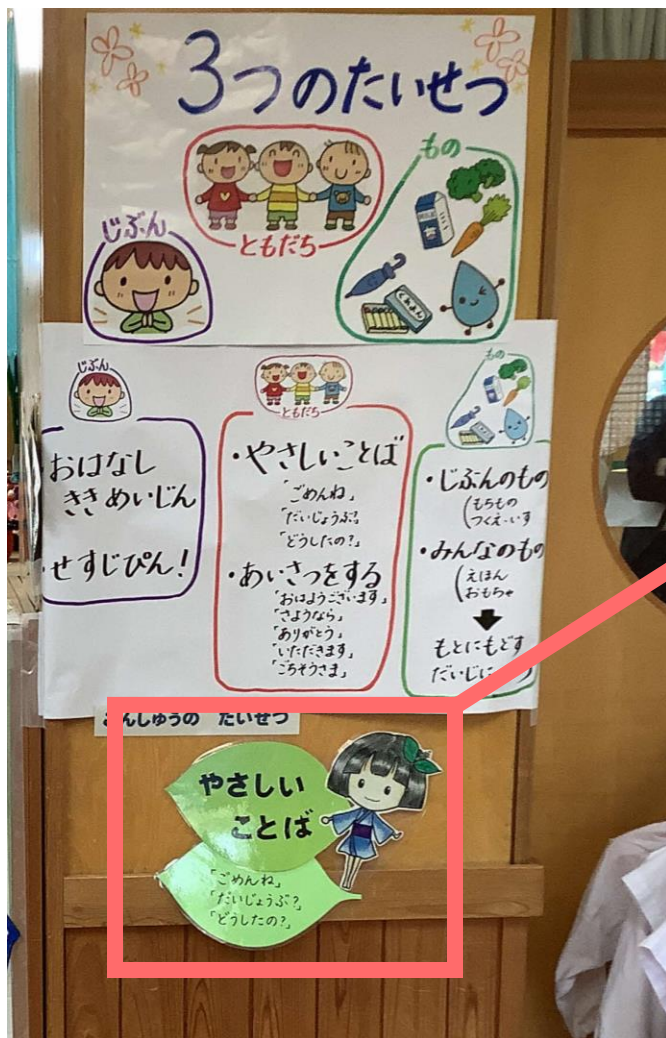 3つのたいせつ
じぶん
ともだち
もの
じぶん
おはなし
ききめいじん
・せすじぴん!
ともだち
・やさしいことば
「ごめんね」
「だいじょうぶ?」
「どうしたの?」
・あいさつをする
「おはようございます」
「さようなら」
「ありがとう」
「いただきます」
「ごちそうさま」
もの
・じぶんのもの
(もちもの
つくえ・いす
・みんなのもの
(えほん
おもちゃ
もとにもどす
だいじに
こんしゅうの たいせつ
やさしい
ことば
「ごめんね」
「だいじょうぶ?」
「どうしたの?」